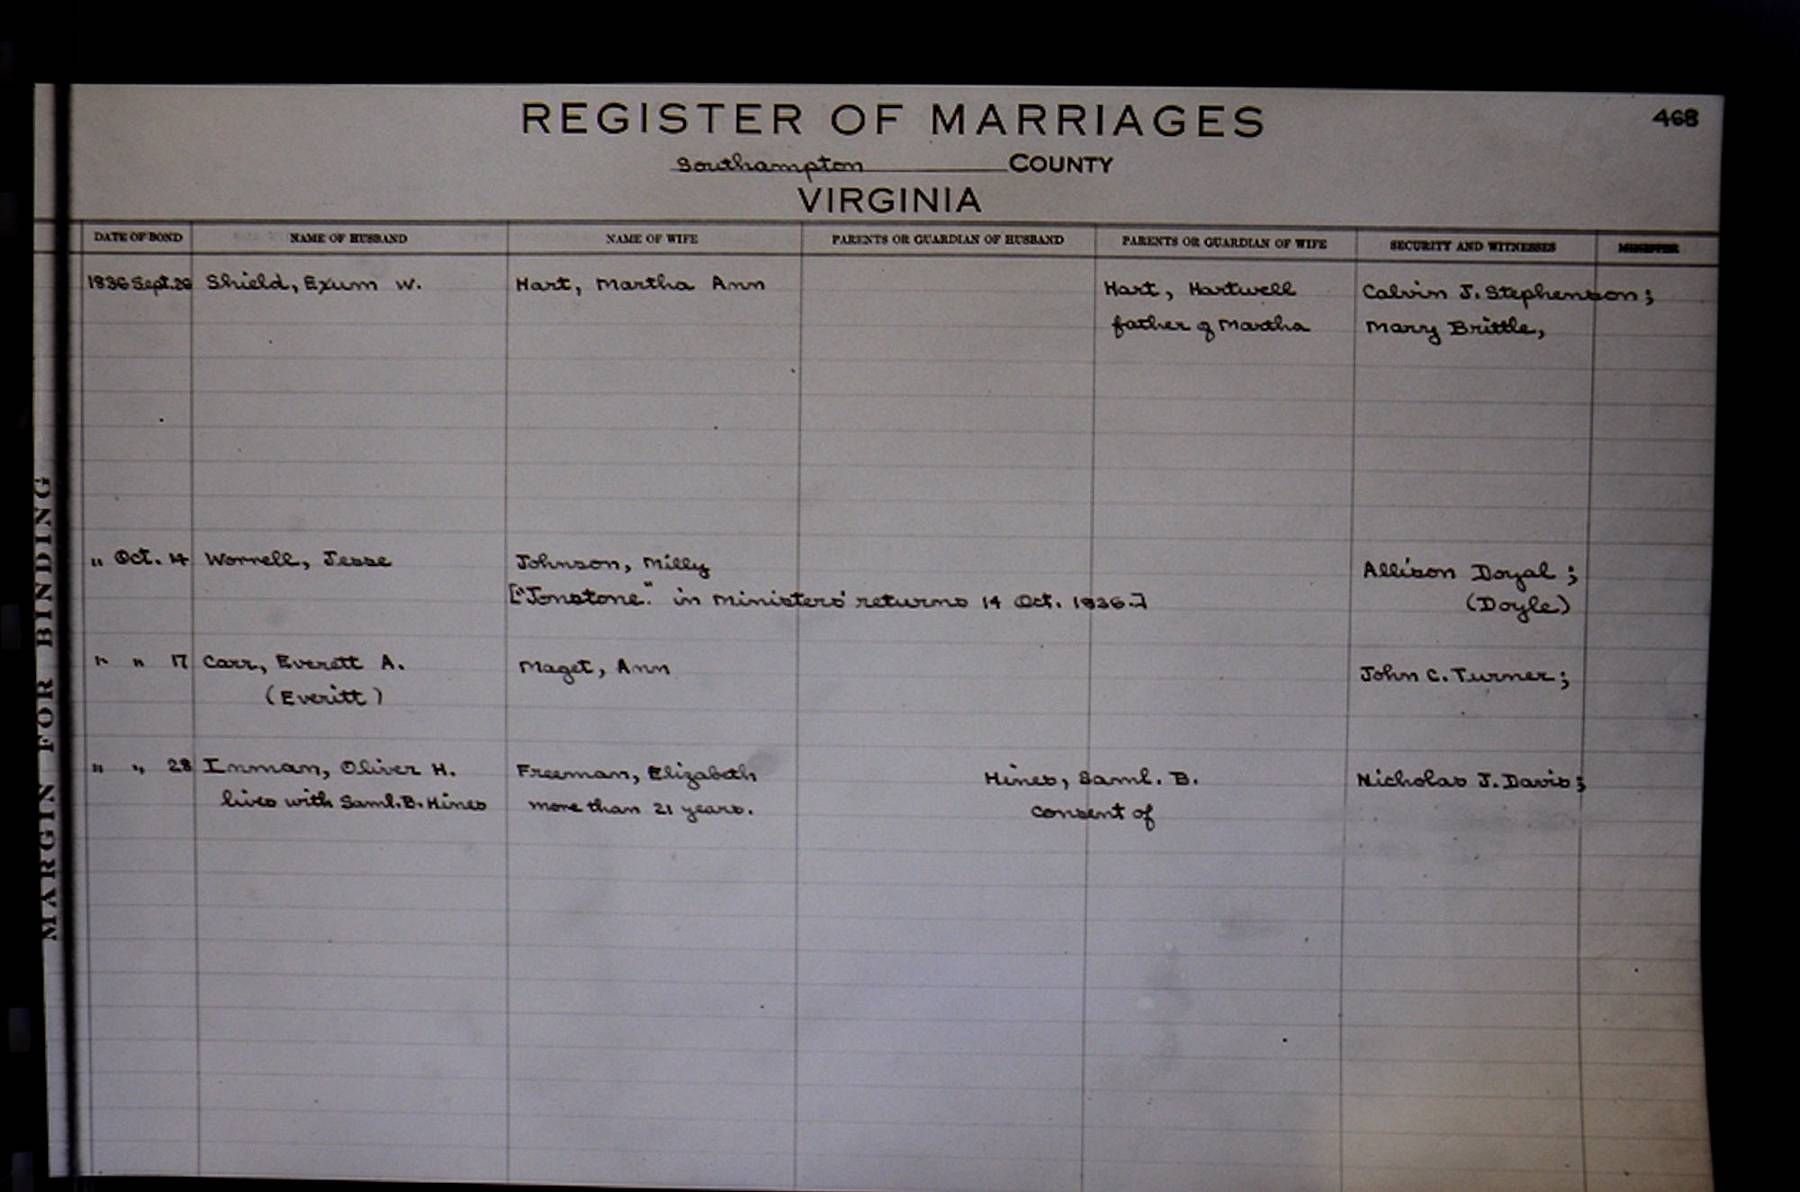 468
REGISTER OF MARRIAGES
Southampton COUNTY
VIRGINIA
DATE OF BOND NAME OF HUSBAND NAME OF WIFE PARENTS OR GUARDIAN OF HUSBAND PARENTS OR GUARDIAN OF WIFE SECURITY AND WITNESSES MINISTER
1836 Sept. Shield, Exum W. Hart, Martha Ann Hart, Hartwell Calvin J. Stephenson;
father of Martha Mary Brittle,
" Oct. 14 Worrell, Jesse Johnson, Milly Allison Doyal;
["Jonstone." in ministers' returns 14 Oct. 1836.] (Doyle)
" " 17 Carr, Everett A. Maget, Ann John C. Turner;
(Everitt)
" " 28 Inman, Oliver H. Freeman, Elizabeth Hines, Saml. B. Nicholas J. Davis;
lives with Saml. B. Hines more than 21 years. consent of
MARGIN FOR BINDING